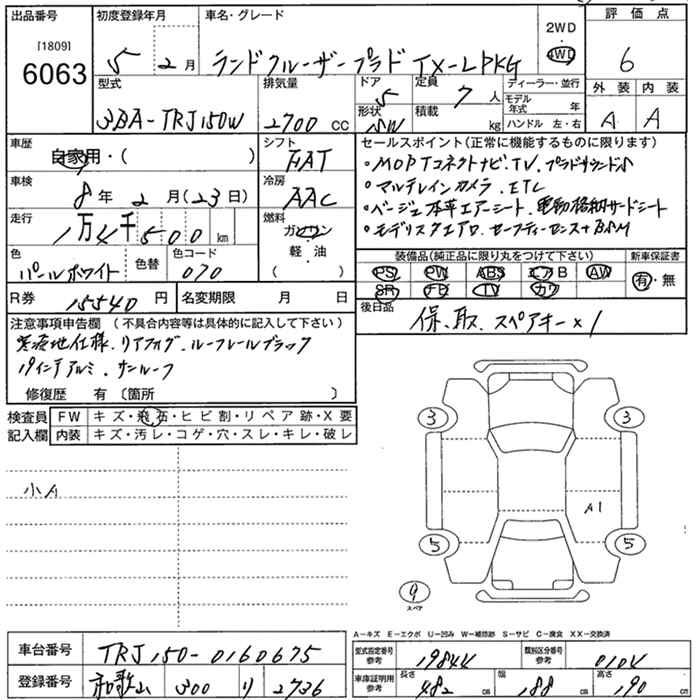 出品番号 初度登録年月 車名・グレード 2WD・4WD 評価点
[1809]
6063 5 2月 ランドクルーザープラド TX-LPKG 6
型式 排気量 ドア 定員 ディーラー・並行 外装 内装
3BA-TRJ150W 2700 CC 5 7人 モデル年式 年 A A
形状 SW 積載 kg ハンドル 左・右
車歴 自家用・( ) シフト FAT
セールスポイント(正常に機能するものに限ります)
・MOPTコネクトナビ、TV、プラドサウンド
・マルテレインカメラ、ETC
・ベージュ本革エアーシート、電動格納サードシート
・モデリスタエアロ、セーフティーセンス+BSM
車検 8年2月(23日) 冷房 AAC
走行 1万4千500km 燃料 ガソリン 軽・油 ( )
色 パールホワイト 色替 色コード 070
装備品(純正品に限り丸をつけて下さい) 新車保証書
PS PW ABS エアB AW 有・無
SR TV カワ
R券 15540円 名変期限 月 日
後日品 保、取、スペアキー×1
注意事項申告欄 (不具合内容等は具体的に記入して下さい)
寒冷地仕様、リアフォグ、ルーフレールブラック
18インチアルミ、サンルーフ
修復歴 有 〔箇所 〕
検査員記入欄 FW キズ・飛石・ヒビ割・リペア跡・X要
内装 キズ・汚レ・コゲ・穴・スレ・キレ・破レ
小A
3 3
A1
5 5
9
スペア
A-キズ E-エクボ U-凹み W-補修跡 S-サビ C-腐食 XX-交換済
車台番号 TRJ150-0160675 型式指定番号参考 19844 類別区分番号参考 0104
登録番号 和歌山 300 り 2736 車庫証明用参考 長さ 482cm 幅 188cm 高さ 190cm